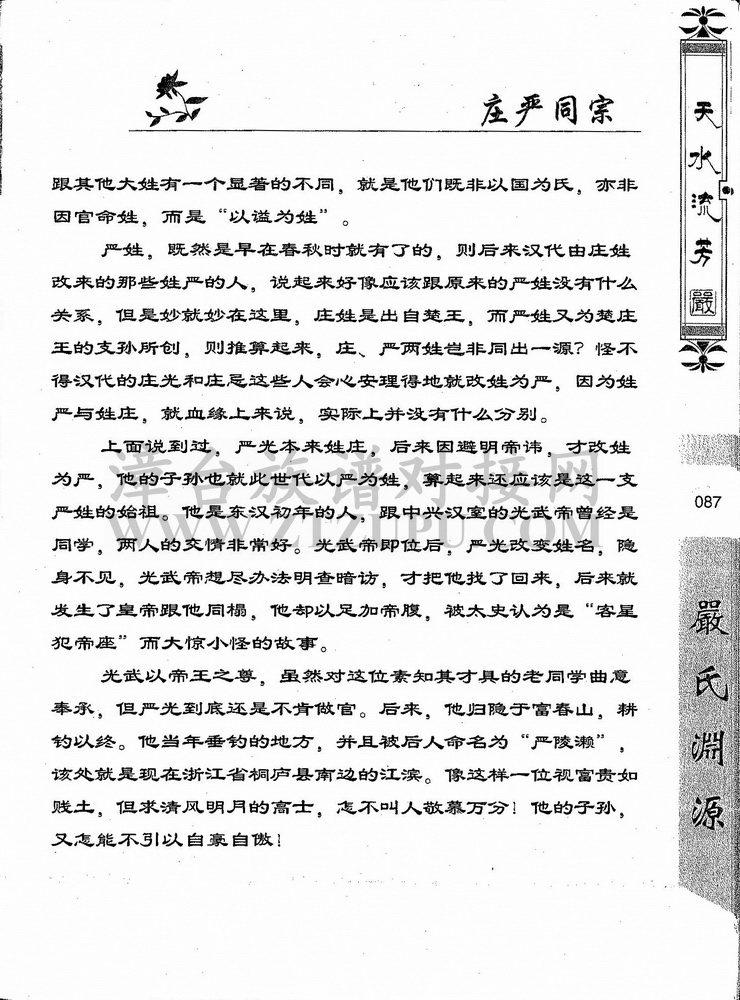 庄严同宗
跟其他大姓有一个显著的不同，就是他们既非以国为氏，亦非
因官命姓，而是“以谥为姓”。
严姓，既然是早在春秋时就有了的，则后来汉代由庄姓
改来的那些姓严的人，说起来好像应该跟原来的严姓没有什么
关系，但是妙就妙在这里，庄姓是出自楚王，而严姓又为楚庄
王的支孙所创，则推算起来，庄、严两姓岂非同出一源？怪不
得汉代的庄光和庄忌这些人会心安理得地就改姓为严，因为姓
严与姓庄，就血缘上来说，实际上并没有什么分别。
上面说到过，严光本来姓庄，后来因避明帝讳，才改姓
为严，他的子孙也就此世代以严为姓，算起来还应该是这一支
严姓的始祖。他是东汉初年的人，跟中兴汉室的光武帝曾经是
同学，两人的交情非常好。光武帝即位后，严光改变姓名，隐
身不见，光武帝想尽办法明查暗访，才把他找了回来，后来就
发生了皇帝跟他同榻，他却以足加帝腹，被太史认为是“客星
犯帝座”而大惊小怪的故事。
光武以帝王之尊，虽然对这位素知其才具的老同学曲意
奉承，但严光到底还是不肯做官。后来，他归隐于富春山，耕
钓以终。他当年垂钓的地方，并且被后人命名为“严陵濑”，
该处就是现在浙江省桐庐县南边的江滨。像这样一位视富贵如
贱土，但求清风明月的高士，怎不叫人敬慕万分！他的子孙，
又怎能不引以自豪自傲！
天水流芳
嚴
087
嚴氏淵源
漳台族谱对接网
WWW.ZTZUPU.COM